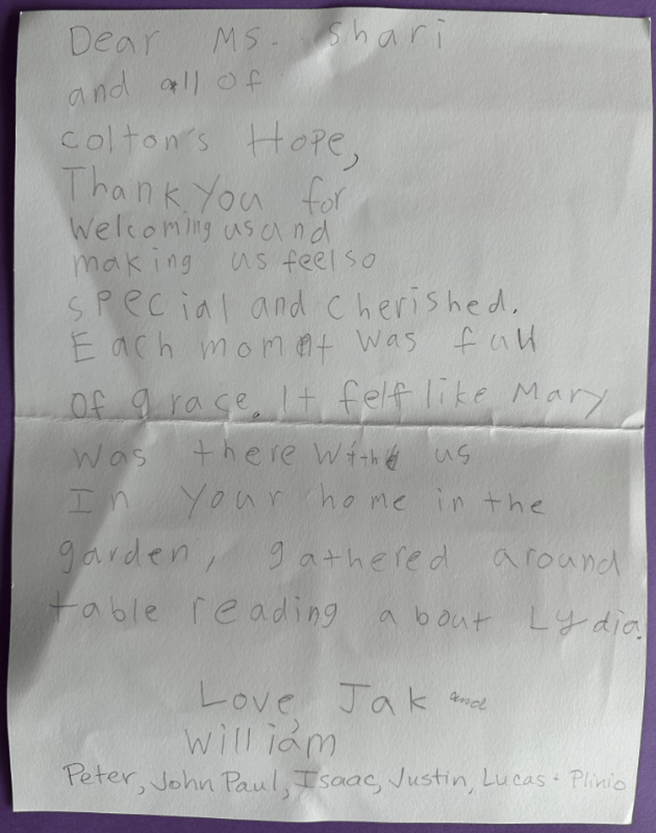 Dear Ms. Shari
and all of
colton's Hope,
Thank you for
Welcoming us and
making us feel so
special and cherished.
Each moment was full
of grace. It felt like Mary
was there with us
In your home in the
garden, gathered around
table reading about Lydia.
Love, Jak and
William
Peter, John Paul, Isaac, Justin, Lucas + Plinio